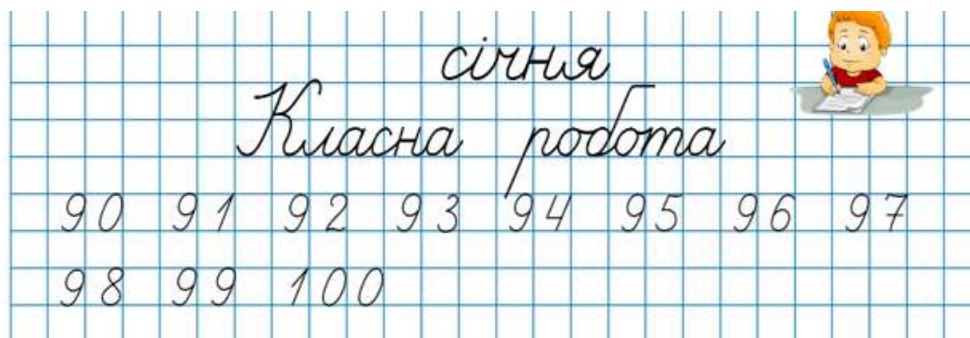 січня
Класна робота
90 91 92 93 94 95 96 97
98 99 100